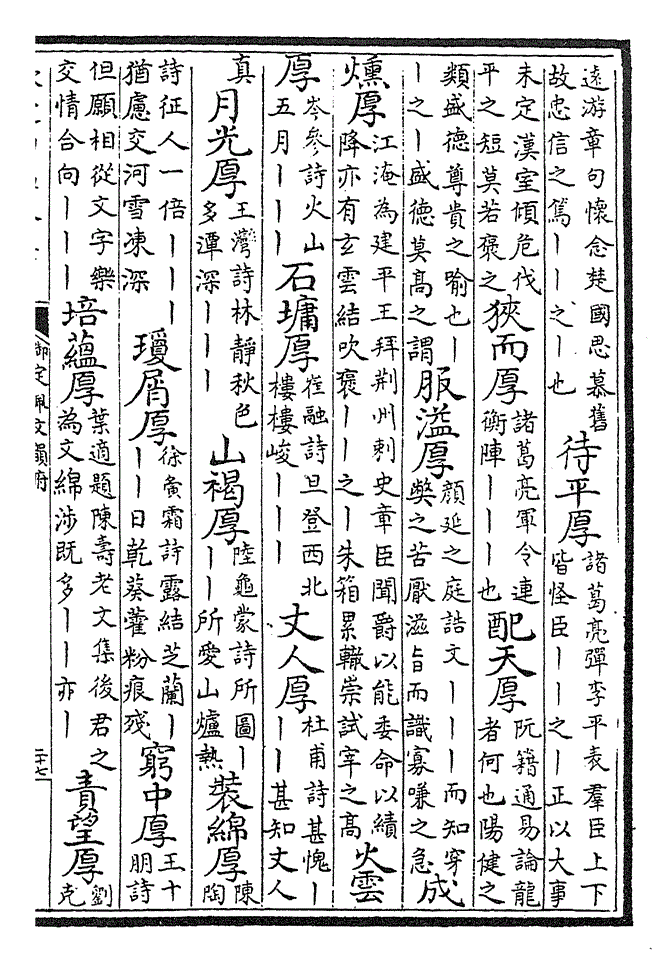 遠游章句懷念楚國思慕舊
故忠信之篤｜｜之｜也
待平厚
諸葛亮彈李平表羣臣上下
皆怪臣｜｜之｜正以大事
未定漢室傾危伐
平之短莫若褒之
狹而厚
諸葛亮軍令連
衡陣｜｜｜也
配天厚
阮籍通易論龍
者何也陽健之
類盛德尊貴之喻也｜
｜之｜盛德莫高之謂
服温厚
顏延之庭誥文｜｜｜而知穿
弊之苦厭滋旨而識寡嗛之急
成
燻厚
江淹為建平王拜荆州刺史章臣聞爵以能委命以績
降亦有玄雲結吹褒｜｜之｜朱箱累轍崇試宰之高
火雲
厚
岑參詩火山
五月｜｜｜
石墉厚
崔融詩旦登西北
樓樓峻｜｜｜
丈人厚
杜甫詩甚愧｜
｜｜甚知丈人
真
月光厚
王灣詩林靜秋色
多潭深｜｜｜
山褐厚
陸龜蒙詩所圖｜
｜｜所愛山爐熱
裝綿厚
陳
陶
詩征人一倍｜｜｜
猶慮交河雪凍深
瓊屑厚
徐夤霜詩露結芝蘭｜
｜｜日乾葵藿粉痕殘
窮中厚
王十
朋詩
但願相從文字樂
交情合向｜｜｜
培蘊厚
葉適題陳壽老文集後君之
為文綿涉既多｜｜亦｜
責望厚
劉
克
御定佩文韻府
二十七